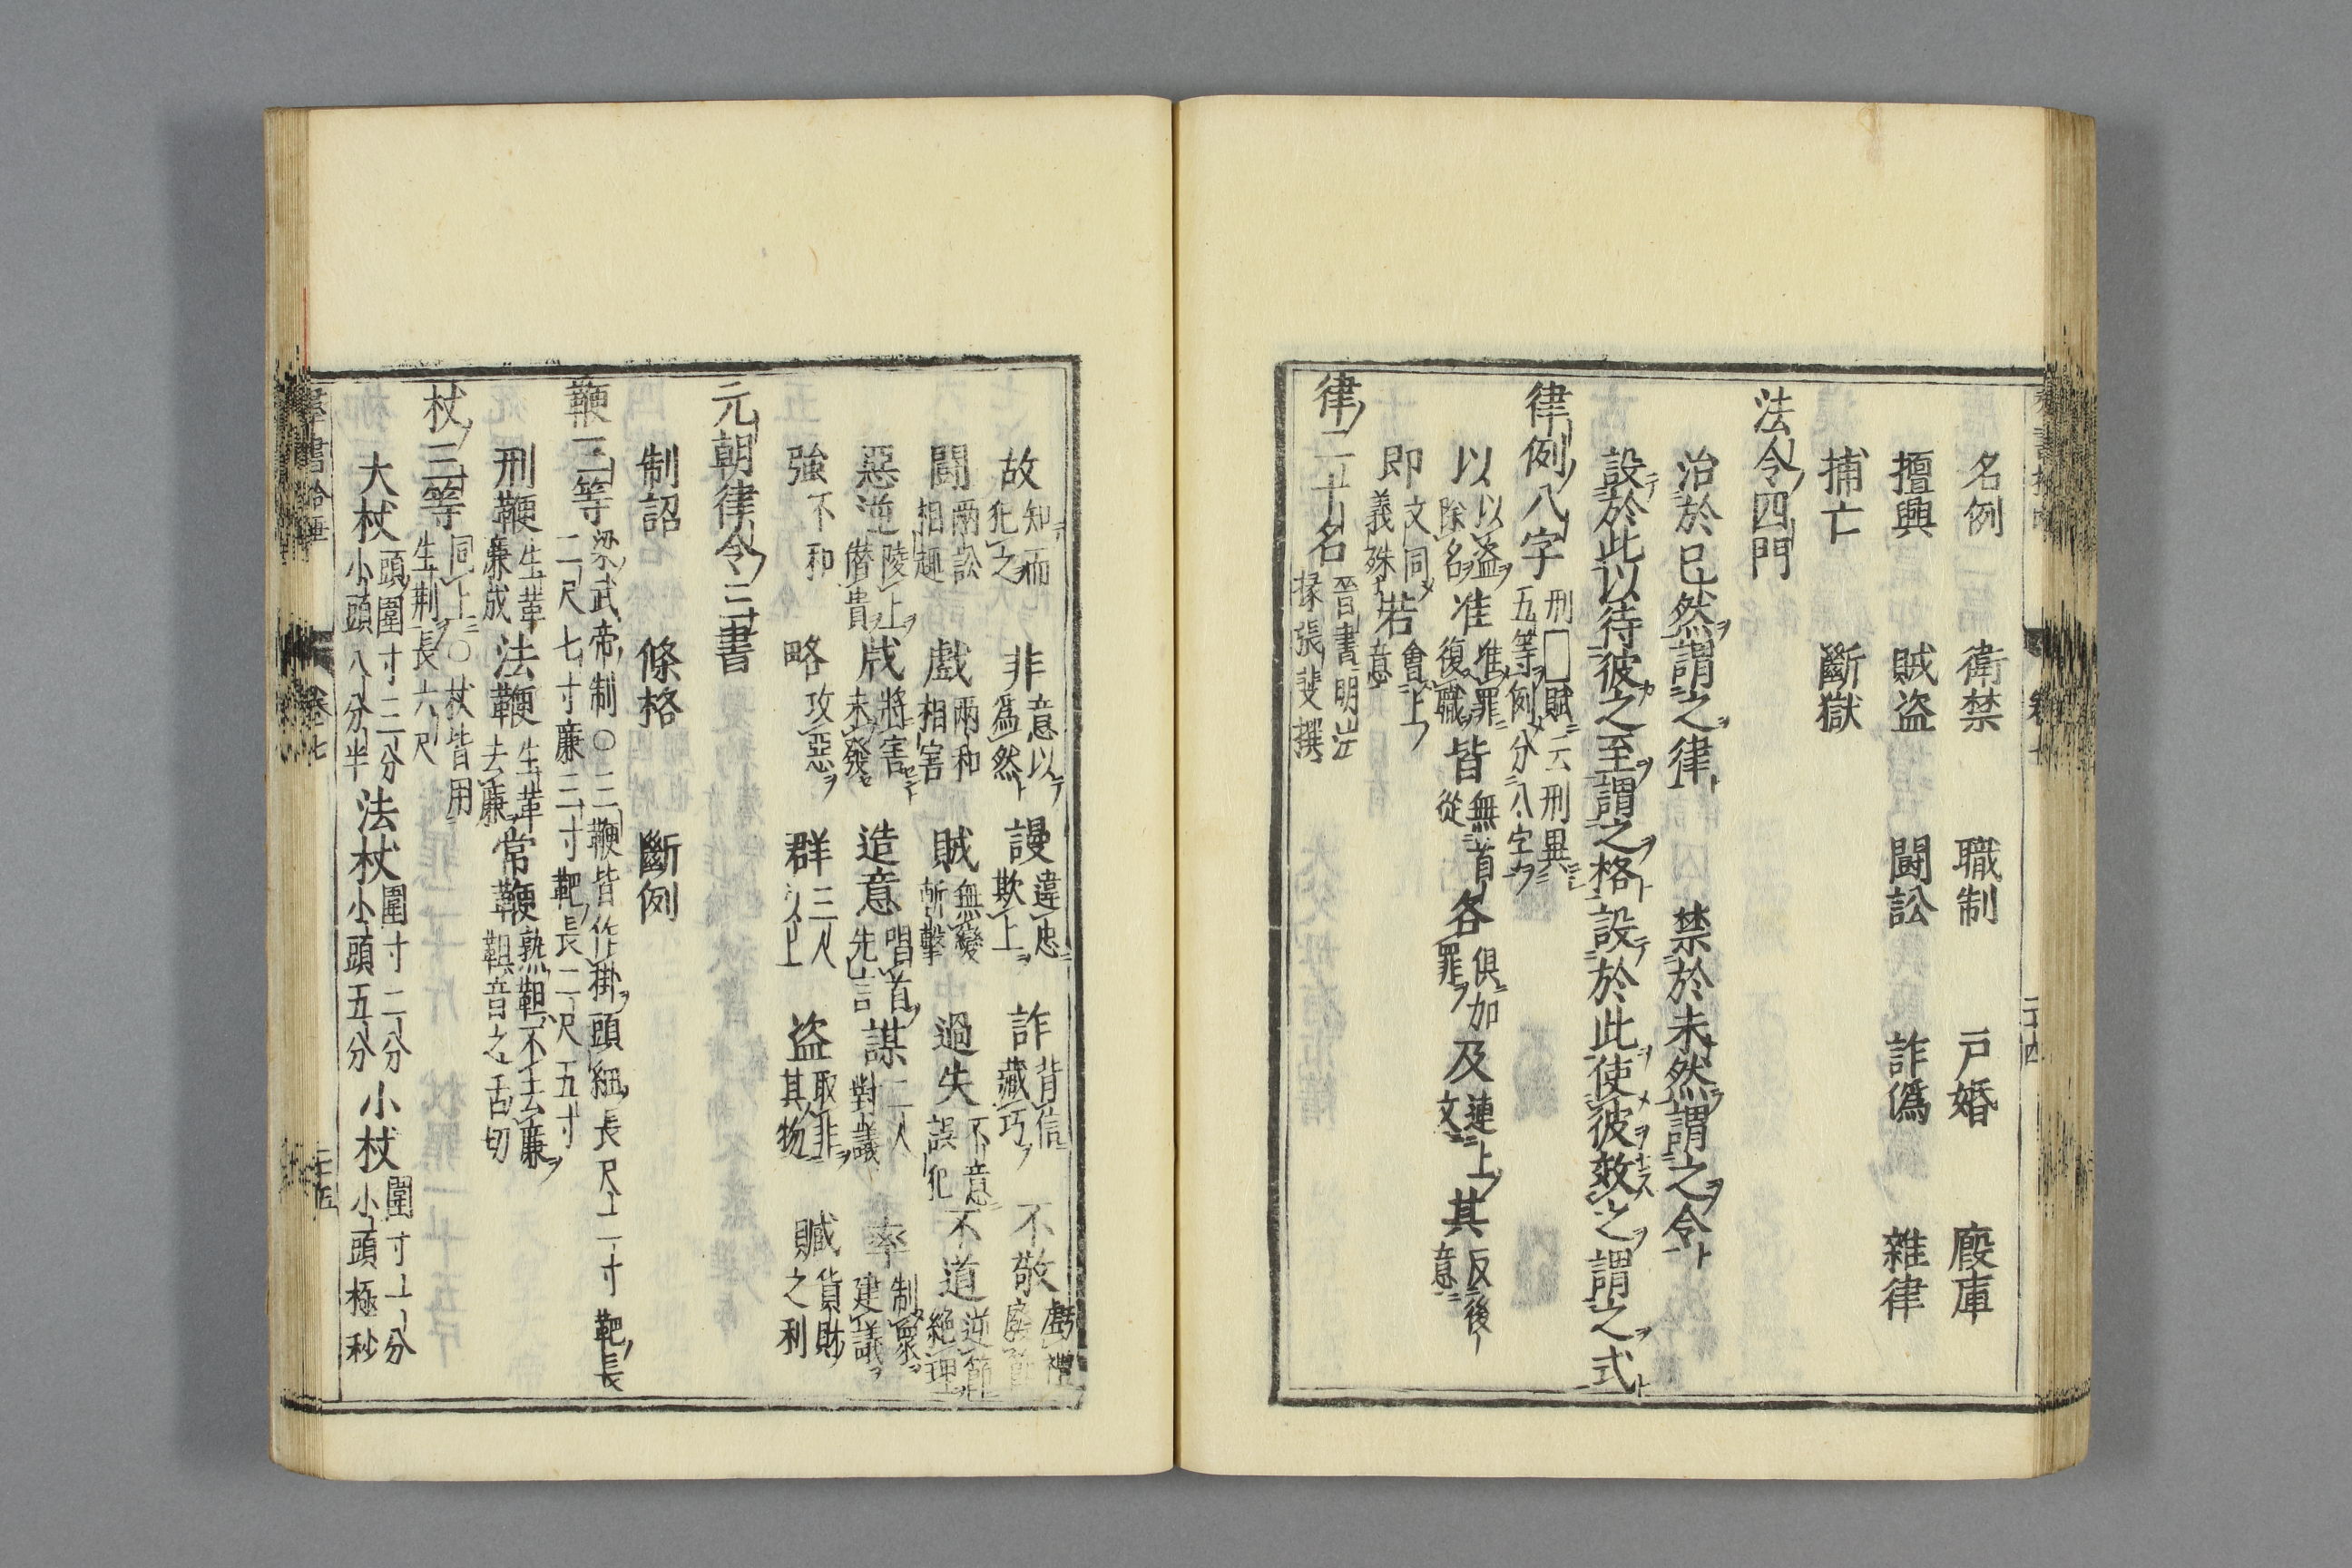 名例 衛禁 職制 戸婚 廐庫
擅興 賊盗 闘訟 詐僞 雜律
捕亡 斷獄
法令四門
治於已然謂之律 禁於未然謂之令
設於此以待彼之至謂之格 設於此使彼效之謂之式
律例八字 刑□賦云刑異五等例分八字
以 以盗除名 准 准罪復職 皆 無首從 各 俱加罪 及 連上文 其 反後意
即 文同義殊 若 會上意
律二十名 晉書明法掾張斐撰
故 知而犯之 非 意以爲然 謾 違忠欺上 詐 背信藏巧 不敬 虧禮廢節
鬪 兩訟相趣 戲 兩和相害 賊 無變斬擊 過失 不意誤犯 不道 逆節絶理
惡逆 陵上僣貴 戕 將害未發 造意 唱首先言 謀 二人對議 率 制衆建議
強 不和 略 攻惡 群 三人以上 盗 取非其物 贓 貨財之利
元朝律令三書
制詔 條格 斷例
鞭三等 梁武帝制○三鞭皆作掛頭紐長尺一寸靶長二尺七寸廉三寸靶長二尺五寸
刑鞭 生革廉成 法鞭 生革去廉 常鞭 熟靼不去廉靼音之舌切
杖三等 同上○杖皆用生荆長六尺
大杖 頭圍寸三分小頭八分半 法杖 圍寸二分小頭五分 小杖 圍寸一分小頭極秒
卷七
二十五